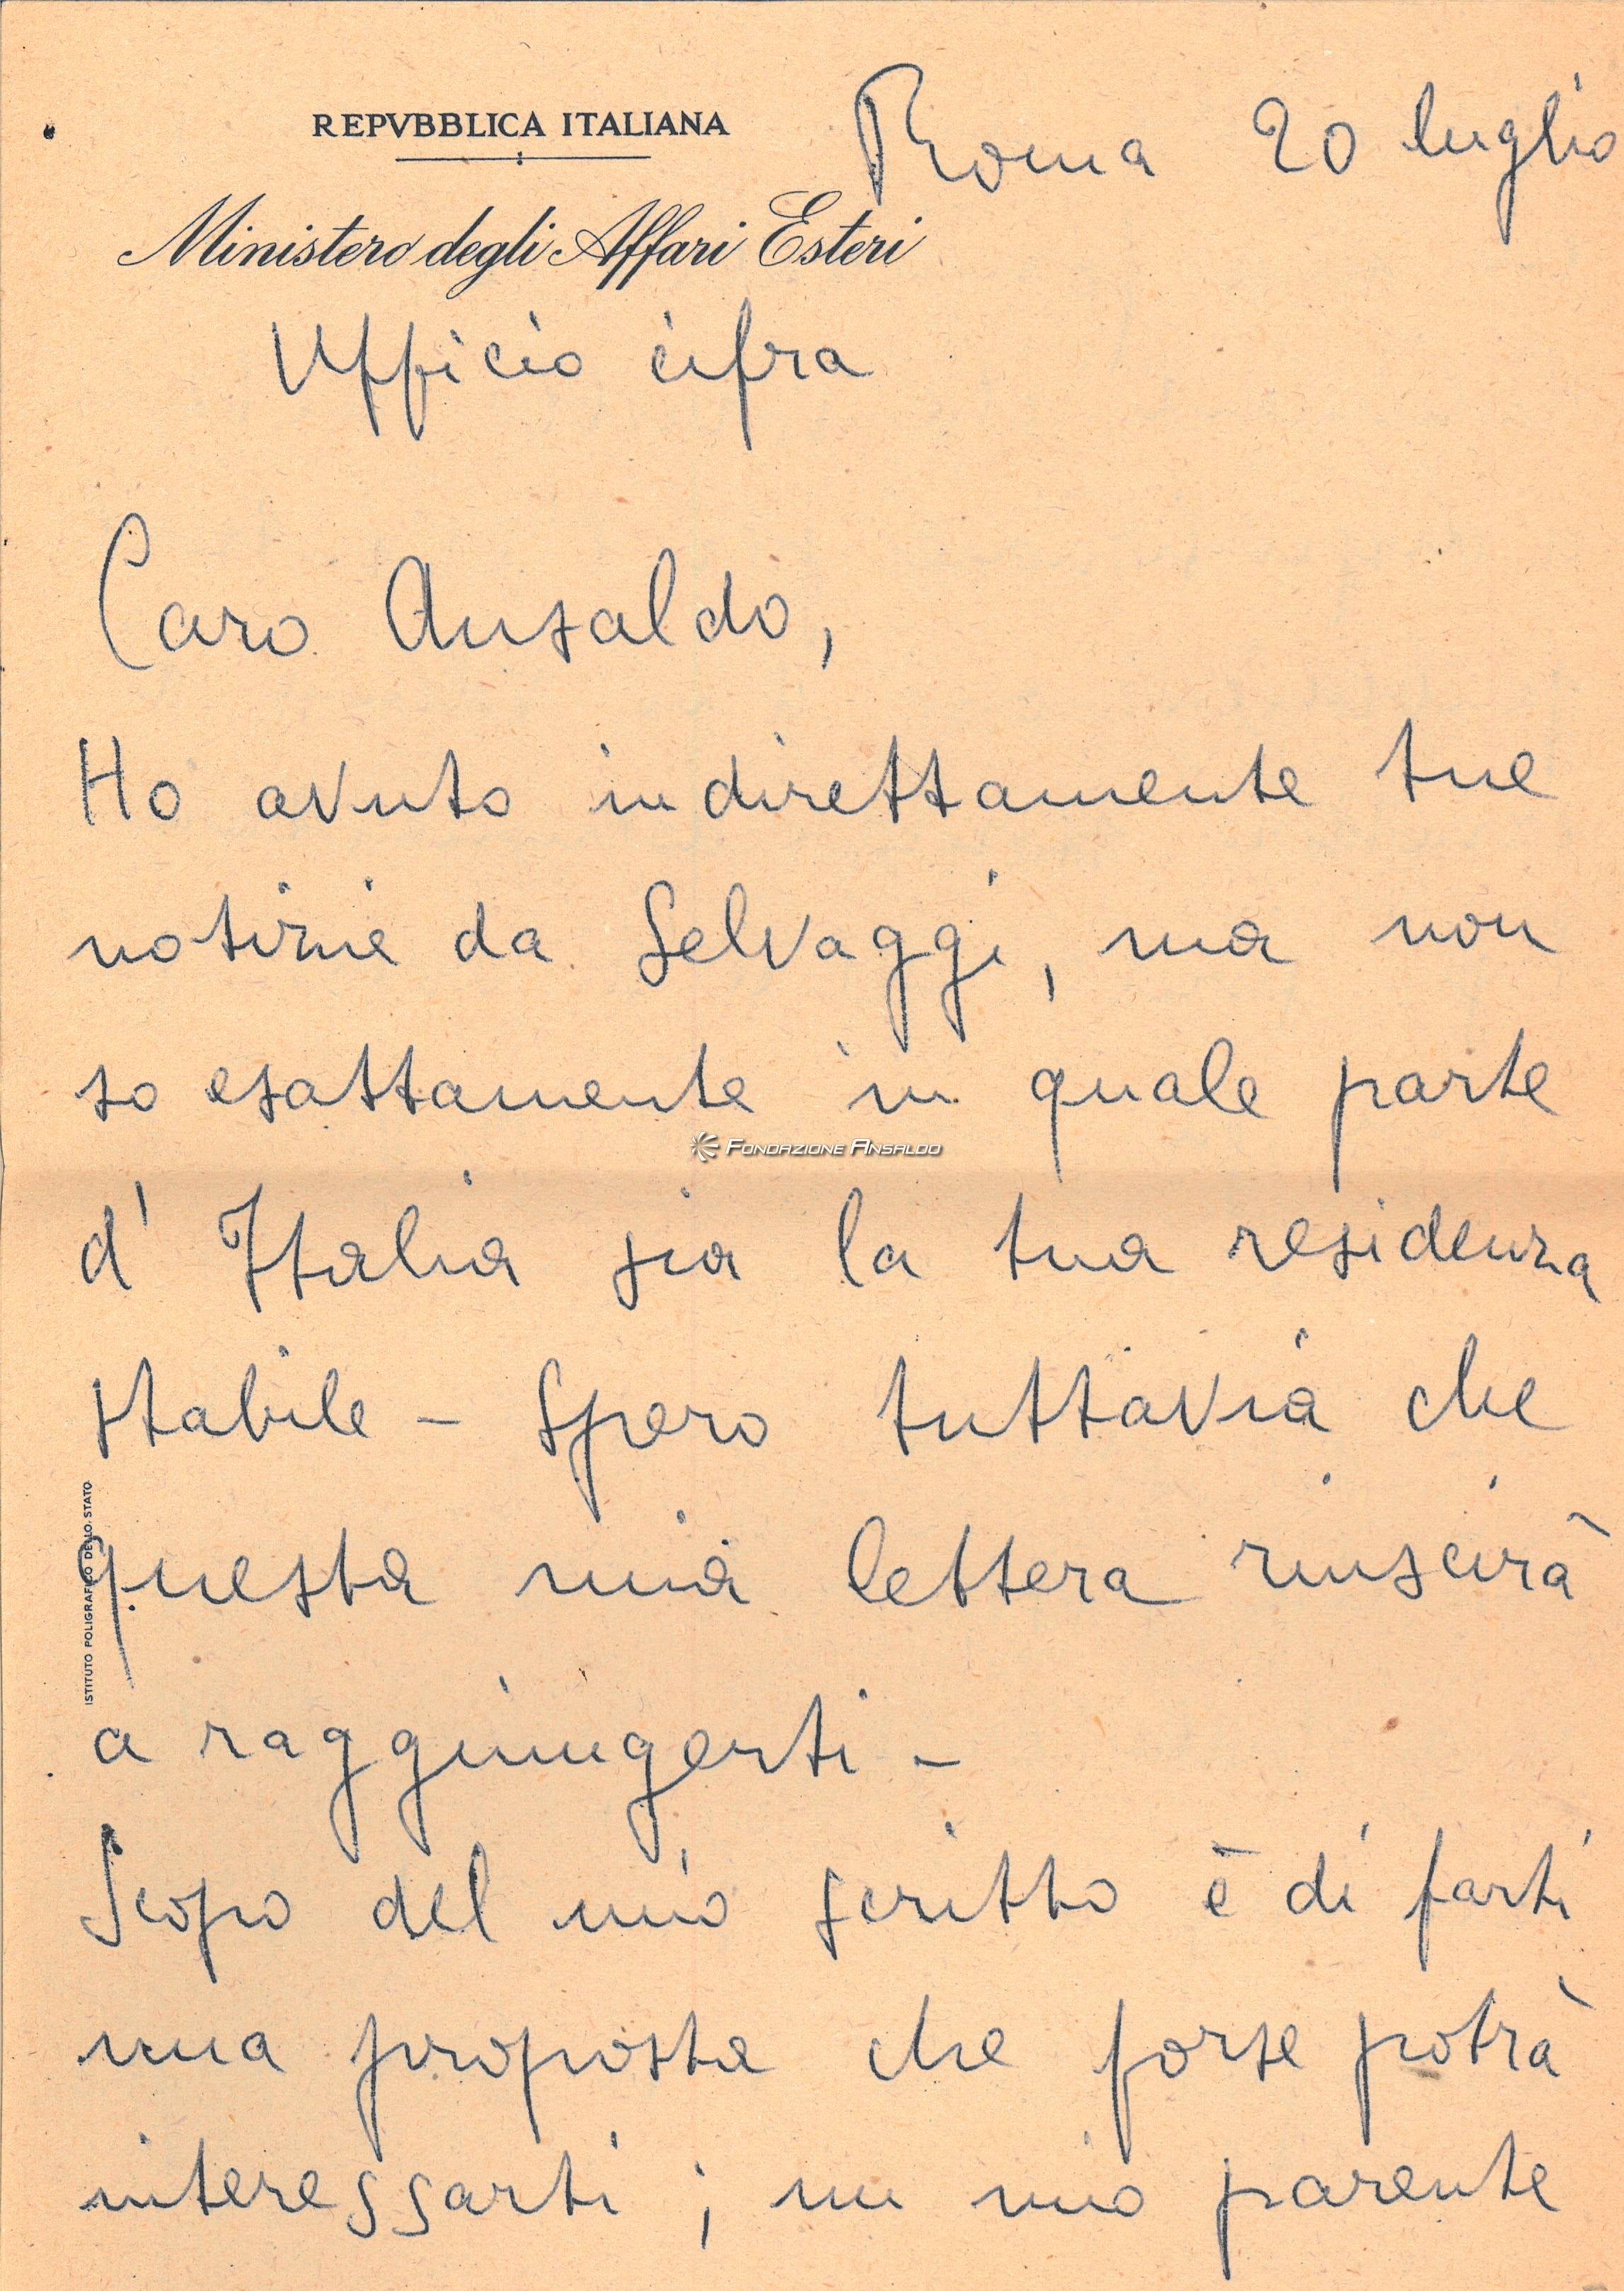 REPVBBLICA ITALIANA
Roma 20 luglio
Ministero degli Affari Esteri
Ufficio cifra
Caro Ansaldo,
Ho avuto indirettamente tue
notizie da Selvaggi, ma non
so esattamente in quale parte
FONDAZIONE ANSALDO
d' Italia sia la tua residenza
stabile - Spero tuttavia che
questa mia lettera riuscirà
a raggiungerti -
Scopo del mio scritto è di farti
una proposta che forse potrà
interessarti; un mio parente
ISTITUTO POLIGRAFICO DELLO STATO